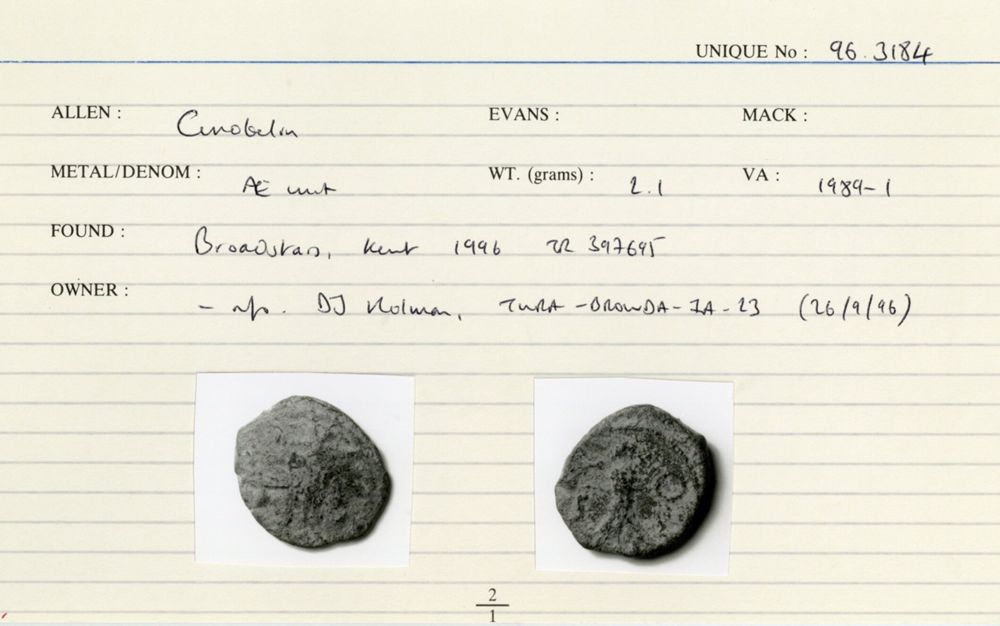 UNIQUE No : 96.3184
ALLEN : Cunobelin EVANS : MACK :
METAL/DENOM : Æ unit WT. (grams) : 2.1 VA : 1989-1
FOUND : Broadstairs, Kent 1996 TR 397695
OWNER : - DJ Holman, (26/9/96)
2
1